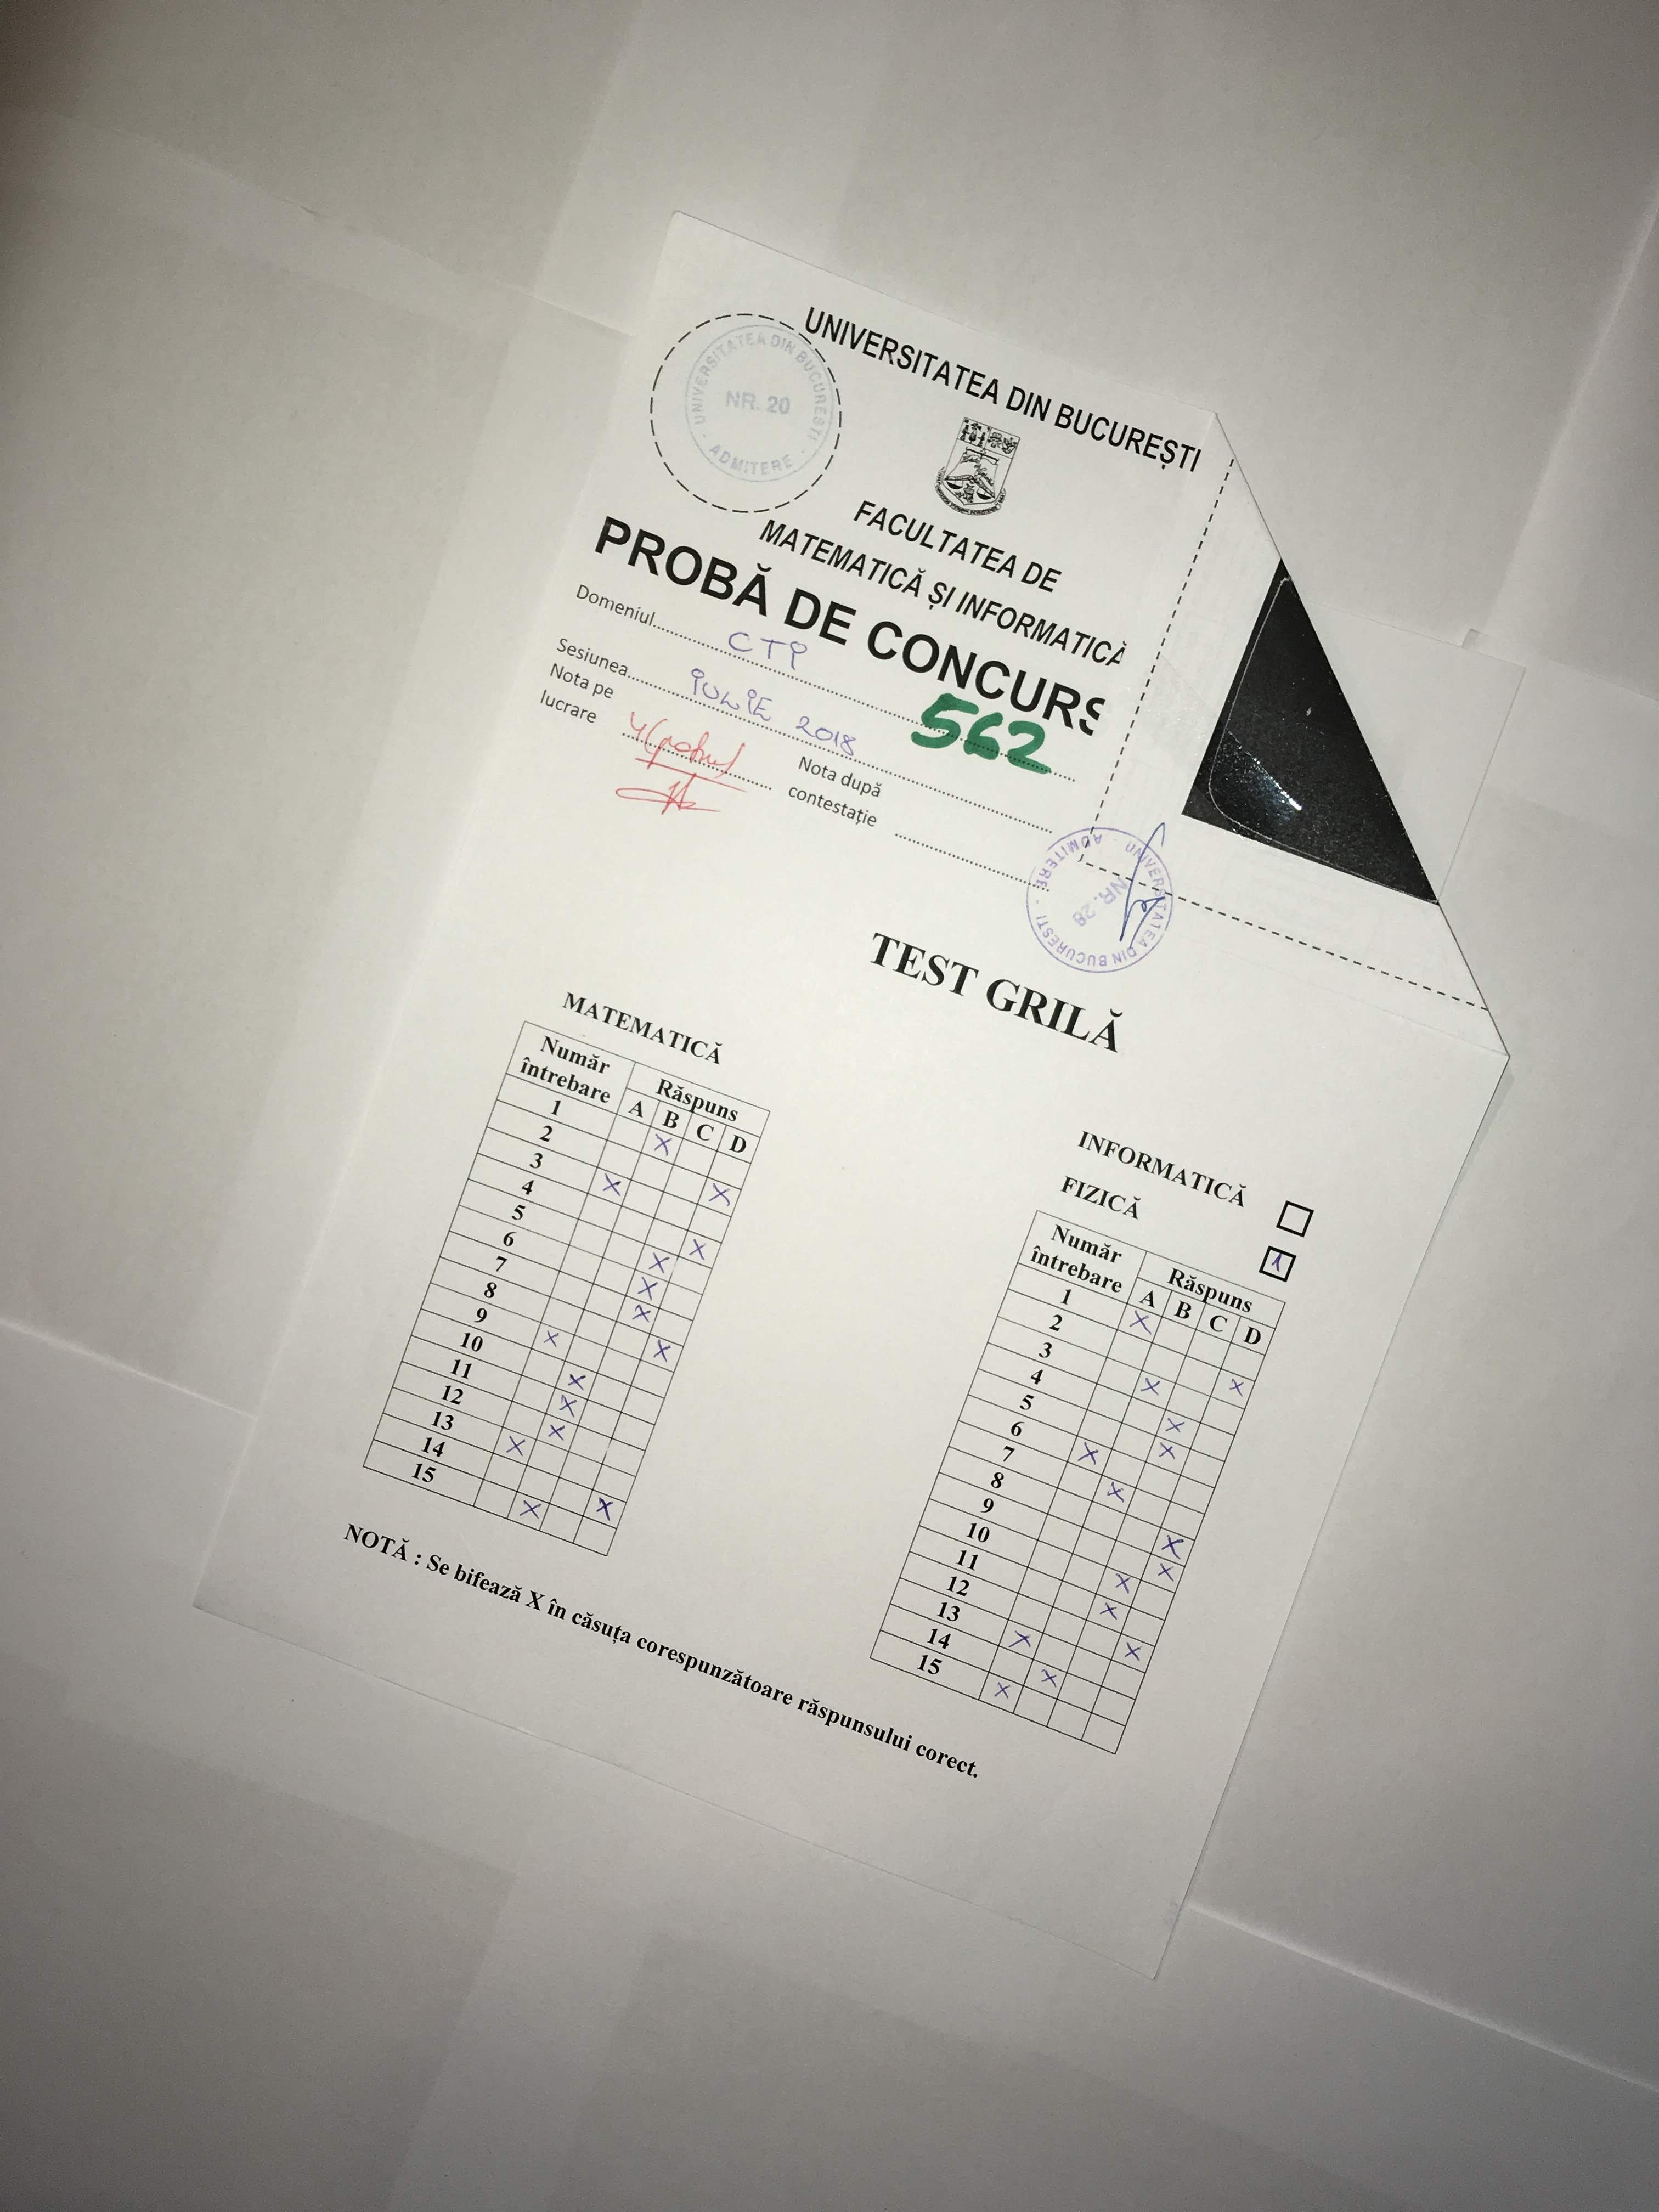 UNIVERSITATEA DIN BUCUREȘTI
UNIVERSITATEA DIN BUCURESTI · ADMITERE ·
NR. 20
FACULTATEA DE
MATEMATICĂ ȘI INFORMATICĂ
PROBĂ DE CONCURS
Domeniul CTI
Sesiunea IULIE 2018
562
Nota pe
lucrare 4 (patru)
Nota după
contestație
UNIVERSITATEA DIN BUCURESTI · ADMITERE ·
NR. 28
TEST GRILĂ
MATEMATICĂ
Număr
întrebare
Răspuns
A B C D
1 X
2 X
3 X
4 X
5 X
6 X
7 X
8 X
9 X
10 X
11 X
12 X
13 X
14 X
15 X
INFORMATICĂ
FIZICĂ X
Număr
întrebare
Răspuns
A B C D
1 X
2 X
3 X
4 X
5 X
6 X
7 X
8 X
9 X
10 X
11 X
12 X
13 X
14 X
15 X
NOTĂ : Se bifează X în căsuța corespunzătoare răspunsului corect.